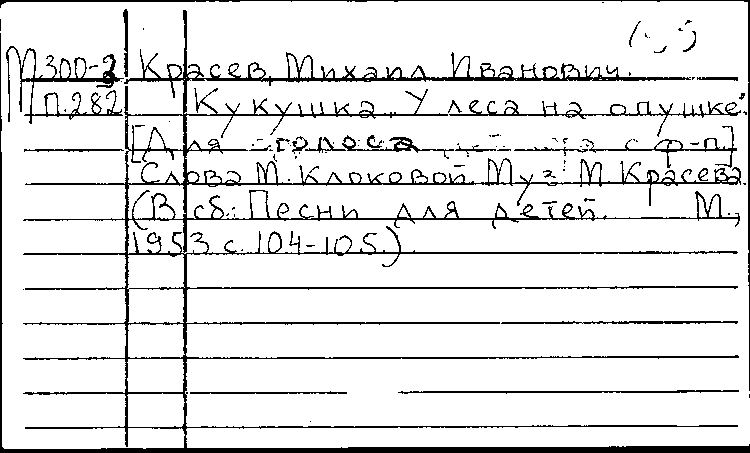 М300-2 Красев, Михаил Иванович.
П.282 Кукушка. "У леса на опушке".
[Для голоса с ф-п.]
Слова М. Клоковой. Муз. М. Красева
(В сб.: Песни для детей. М.,
1953 с. 104-105.)